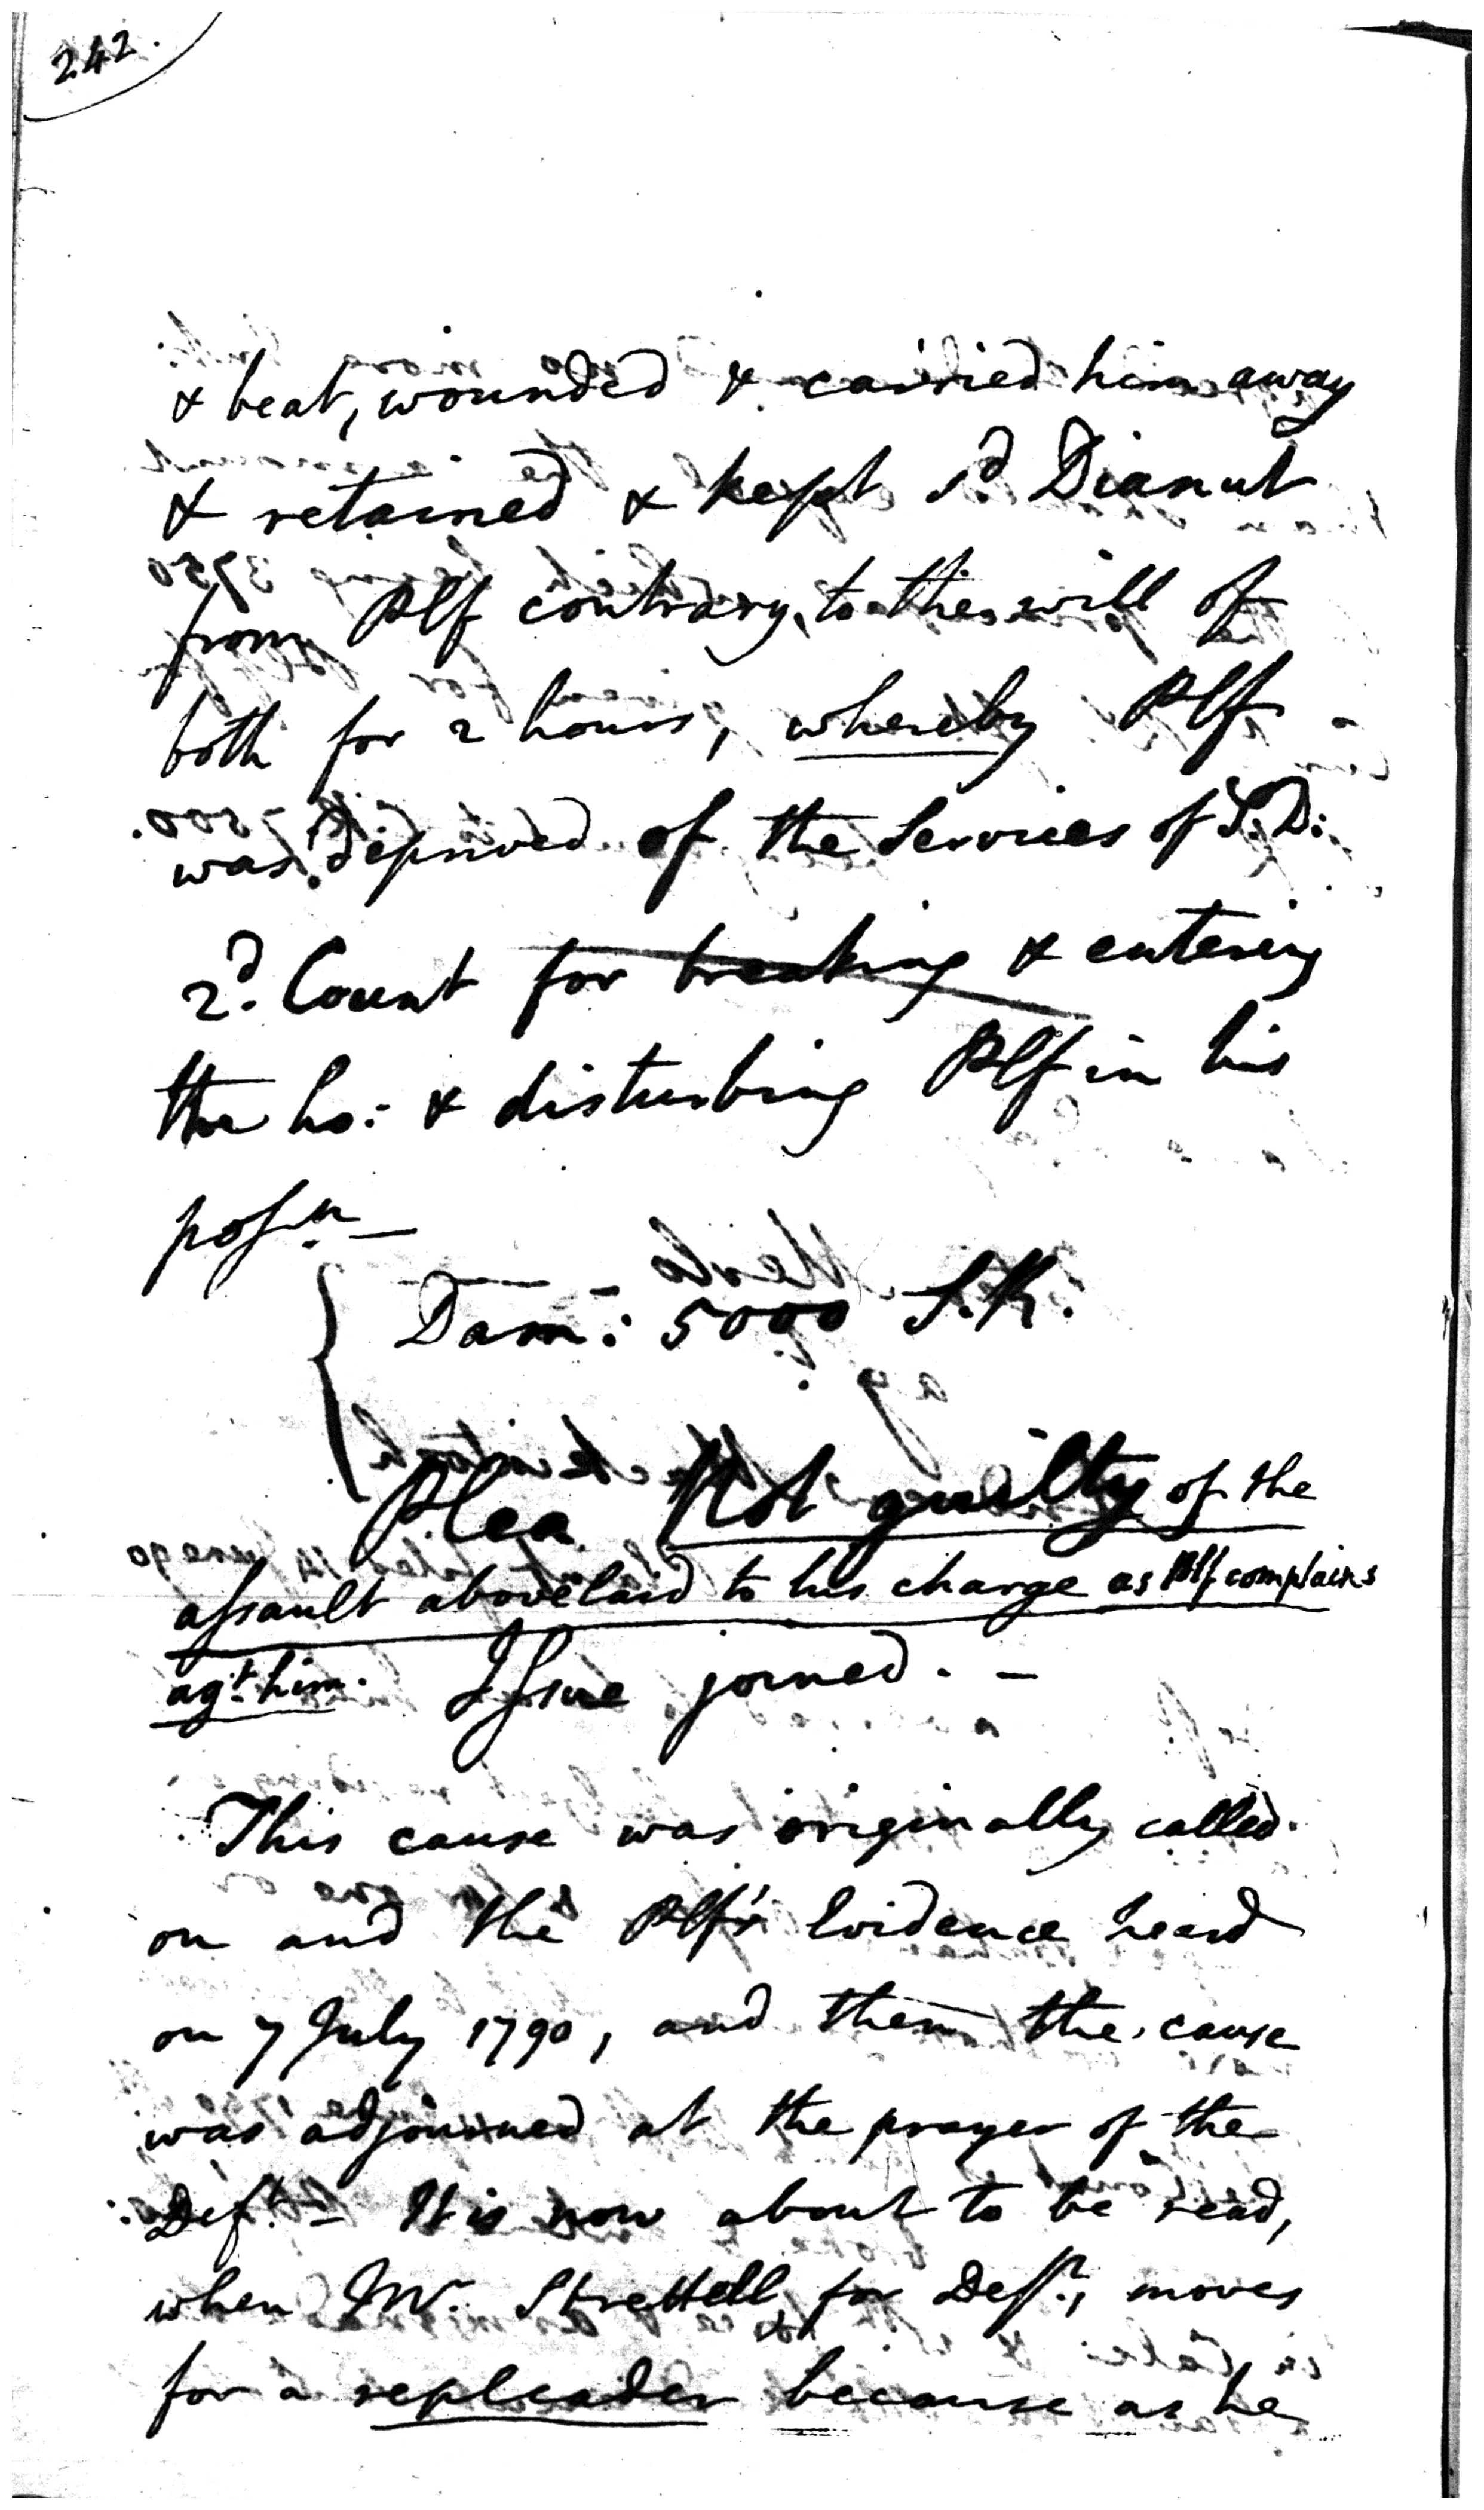 242.
& beat, wounded & carried him away
& retained & kept sd. Dianut
from Plf contrary to the will of
both for 2 hours, whereby Plf
was deprived of the services of S.D:
2d. Count for breaking & entering
the ho: & disturbing Plf in his
possn. —
Dam: 5000 S.R.
Plea Not guilty of the
assault above laid to his charge as Plf complains
agt. him. Issue joined. —
This cause was originally called
on and the Plf's Evidence heard
on 7 July 1790, and then the cause
was adjourned at the prayer of the
Deft. – It is now about to be read,
when Mr. Strettell for Deft., moves
for a repleader because as he